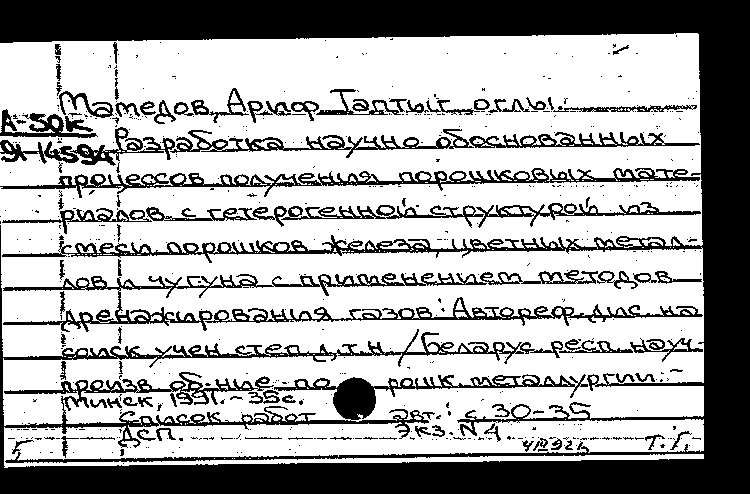 Мамедов, Ариф Таптыг оглы.
А-50к
91-14594
Разработка научно обоснованных
процессов получения порошковых мате-
риалов с гетерогенной структурой из
смеси порошков железа, цветных метал-
лов и чугуна с применением методов
дренажирования газов: Автореф. дис. на
соиск. учен. степ. д.т.н. / Беларус. респ. науч.-
произв. об-ние по рошк. металлургии. -
Минск, 1991. - 35 с.
Список работ авт.: с. 30-35
ДСП. Экз. N 4.
5 Т.Г.